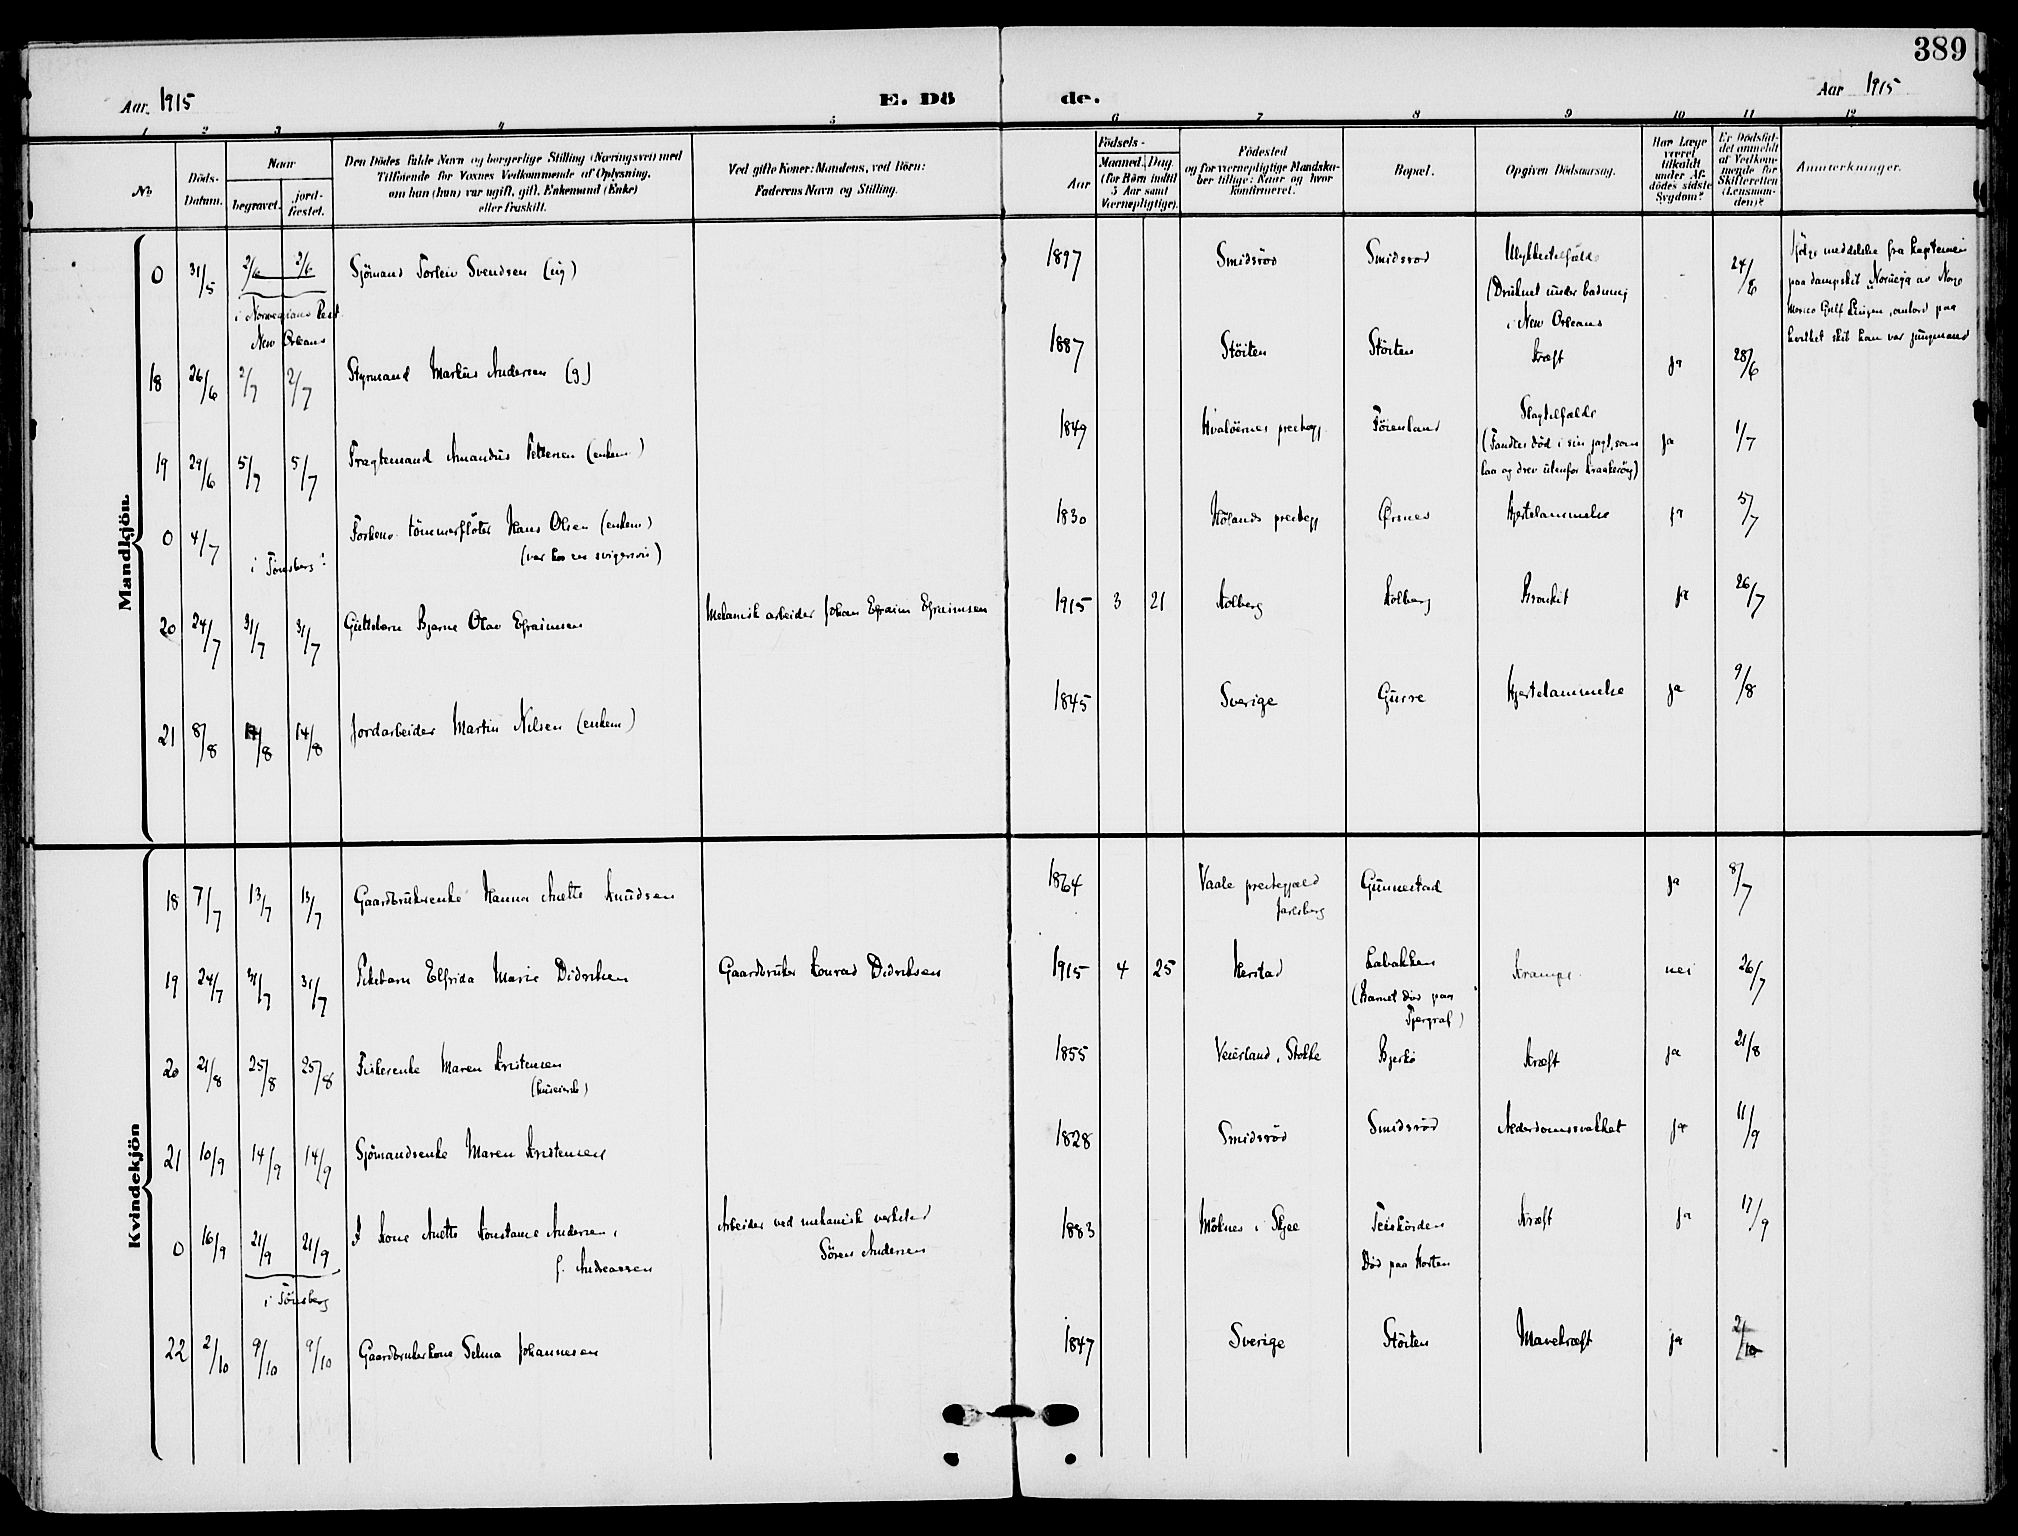 389
Aar 1915 E. Dö de. Aar 1915
1 2 3 4 5 6 7 8 9 10 11 12
No.
Döds-
Datum.
Naar
begravet.
jord-
fæstet.
Den Dödes fulde Navn og borgerlige Stilling (Næringsvei) med
Tilföiende for Voxnes Vedkommende af Oplysning,
om han (hun) var ugift, gift, Enkemand (Enke)
eller fraskilt.
Ved gifte Koner: Mandens, ved Börn:
Faderens Navn og Stilling.
Födsels-
Aar
Maaned. Dag.
(for Börn indtil
5 Aar samt
Værnepligtige).
Födested
og for værnepligtige Mandska-
ber tillige: Naar og hvor
konfirmeret.
Bopæl.
Opgiven Dödsaarsag.
Har Læge
været
tilkaldt
under Af-
dödes sidste
Sygdom?
Er Dödsfal-
det anmeldt
af Vedkom-
mende for
Skifteretten
(Lensman-
den)?
Anmerkninger.
Mandkjön.
0 31/5 2/6 2/6 Sjömand Torleiv Svendsen (ug) 1897 Smidsröd Smidsröd Ulykkestilfælde - 24/6
i Norwegians Rest
New Orleans
(Druknet under badning
i New Orleans
Ifölge meddelelse fra kapteinen
paa dampskib "Noruega" av Norge
Mexico Gulf Linjen, ombord paa
hvilket skib han var jungmand
18 26/6 2/7 2/7 Styrmand Markus Andersen (g) 1887 Stöiten Stöiten Kræft ja 28/6
19 29/6 5/7 5/7 Fragtemand Amandus Pettersen (enkem) 1849 Hvalöernes prestegj. Föienland Slagtilfælde ja 1/7
(Fandtes död i sin jagt, som
laa og drev utenfor Kraakeröy)
0 4/7 Forhenv. tömmerflöter Hans Olsen (enkem) 1830 Hölands prestegj Örsnes Hjertelammelse ja 5/7
i Tönsberg
(var hos en svigersön)
20 24/7 31/7 31/7 Guttebarn Bjarne Olav Efraimsen Mekanisk arbeider Johan Efraim Efraimsen 1915 3 21 Kolberg Kolberg Bronkit ja 26/7
21 8/8 14/8 14/8 Jordarbeider Martin Nilsen (enkem) 1845 Sverige Gurre Hjertelammelse ja 9/8
Kvindekjön
18 7/7 13/7 13/7 Gaardbrukerenke Hanna Anette Knudsen 1864 Vaale prestegjæld Gunnestad ja 8/7
Jarlsberg
19 24/7 31/7 31/7 Pikebarn Elfrida Marie Didriksen Gaardbruker Konrad Didriksen 1915 4 25 Herstad Labakken Krampe nei 26/7
(Barnet död paa
Fjærgraf)
20 21/8 25/8 25/8 Fiskerenke Maren Kristensen 1855 Veierland, Stokke Bjerkö Kræft ja 21/8
21 10/9 14/9 14/9 Sjömandsenke Maren Kristensen 1828 Smidsröd Smidsröd Alderdomssvakhet ja 11/9
0 16/9 21/9 21/9 Kone Anette Konstance Andersen, Arbeider ved mekanisk verksted 1883 Möknes i Skjee Kræft ja 17/9
f. Andreassen Sören Andersen Död paa Horten
i Tönsberg
22 2/10 9/10 9/10 Gaardbrukerkone Selma Johannesen 1847 Sverige Stöiten Mavekræft ja 2/10